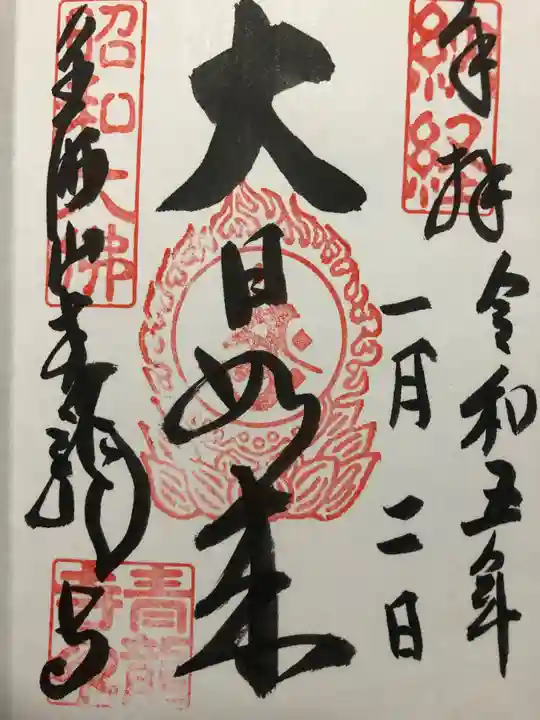 奉拝
令和五年
一月二日
納経
大日如来
昭和大佛
山青龍寺
青龍寺